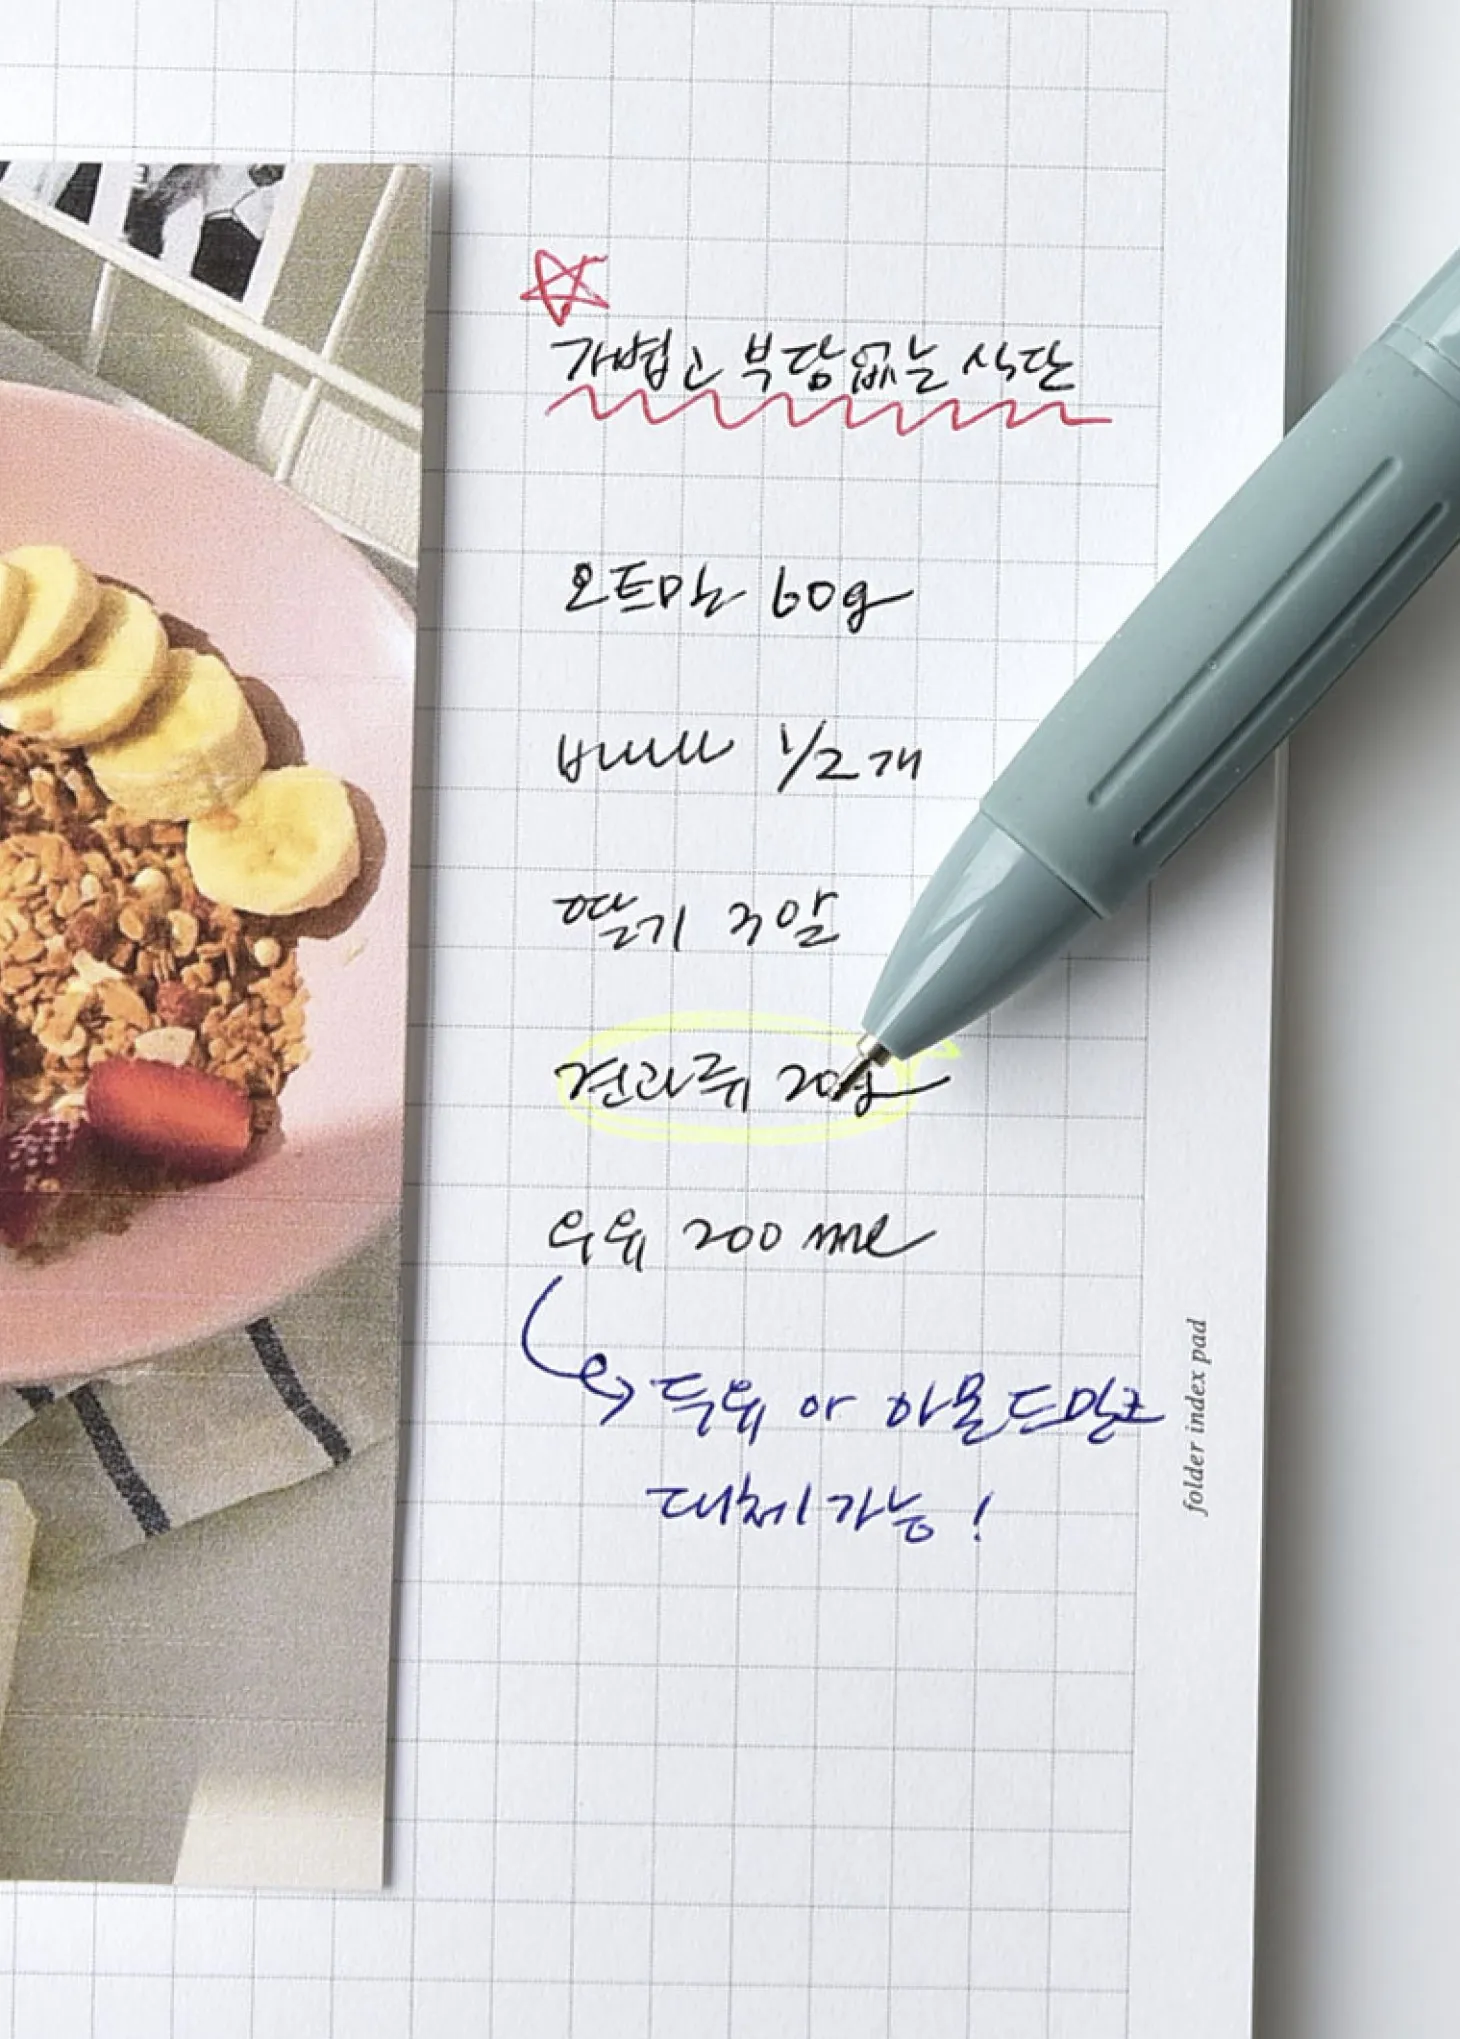 가볍고 부담없는 식단
오트밀 60g
바나나 1/2개
딸기 3알
견과류 20g
우유 200ml
두유 아 아몬드밀크
대체가능!
folder index pad